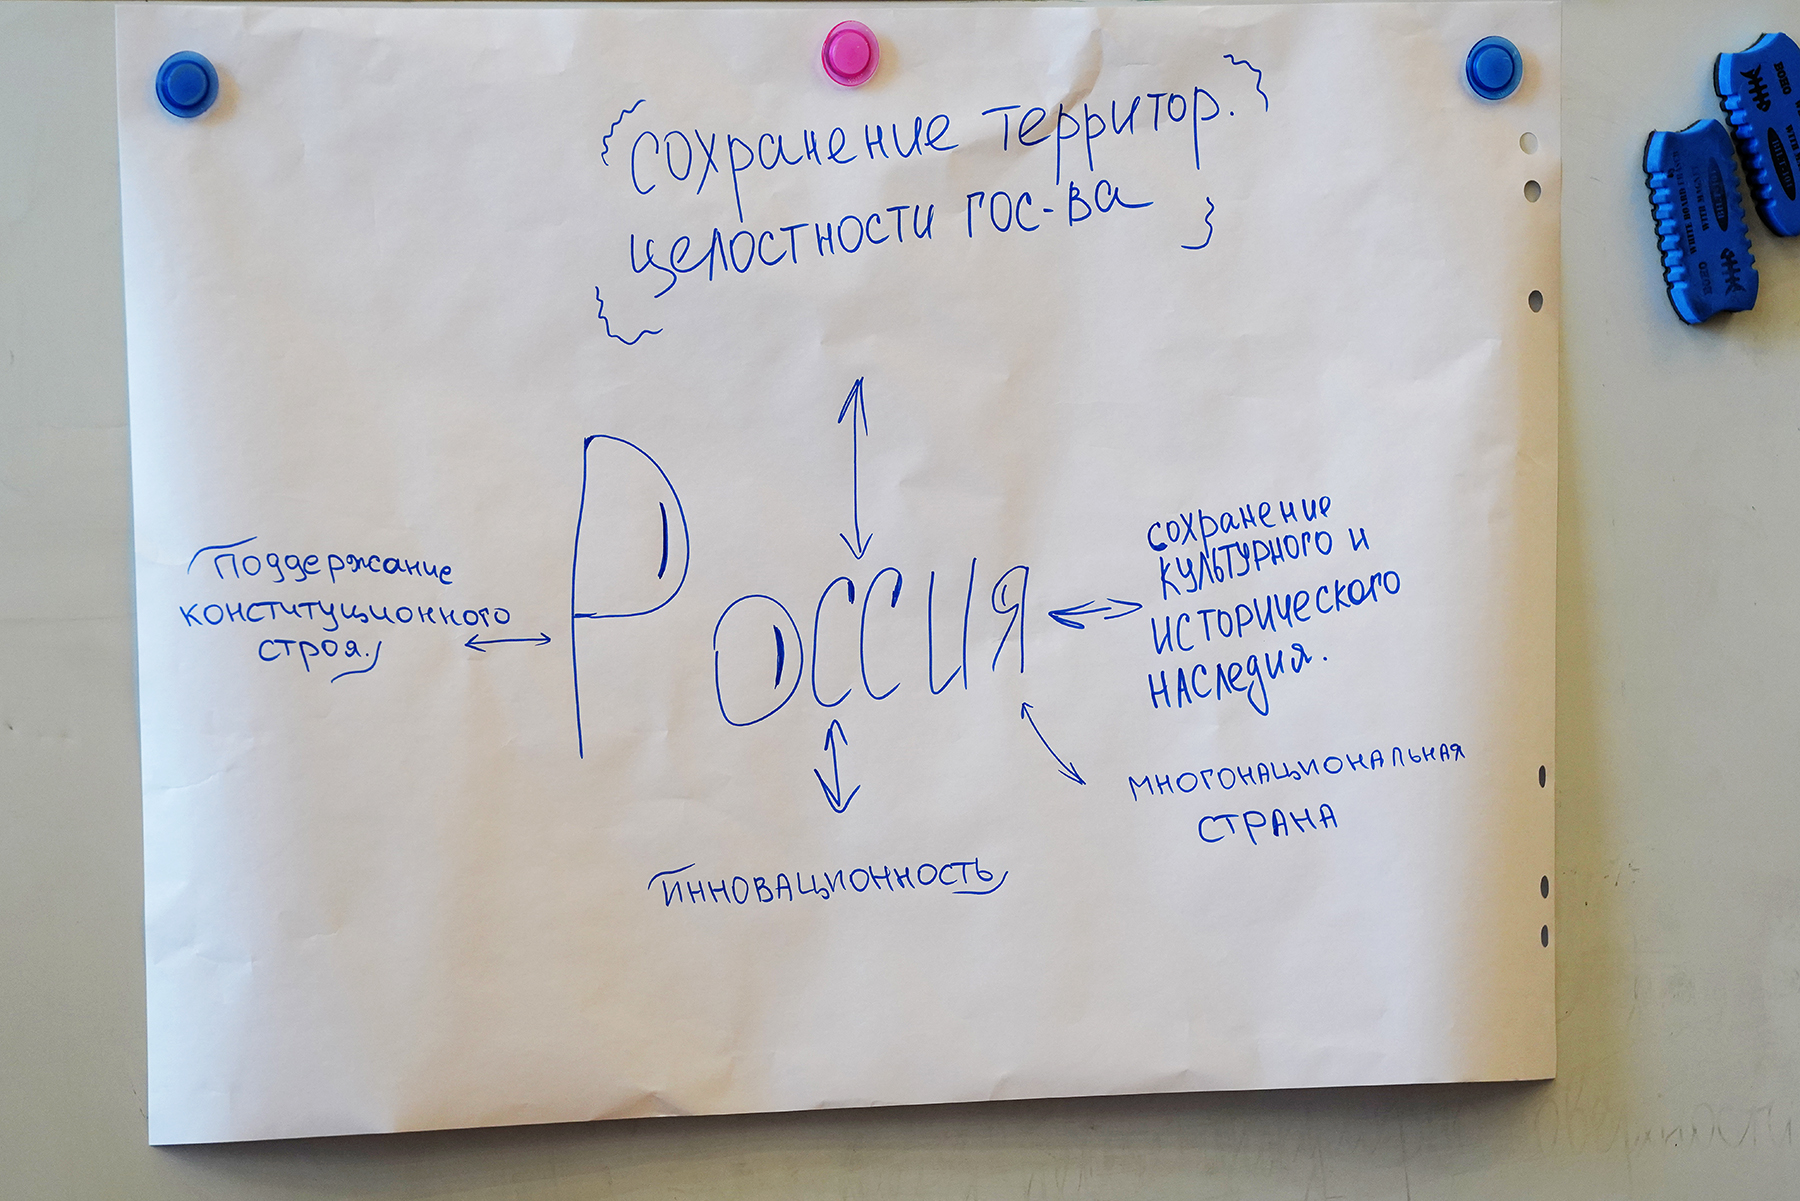 сохранение территор.
целостности гос-ва
Поддержание
конституционного
строя.
Россия
сохранение
культурного и
исторического
наследия.
многонациональная
страна
инновационность